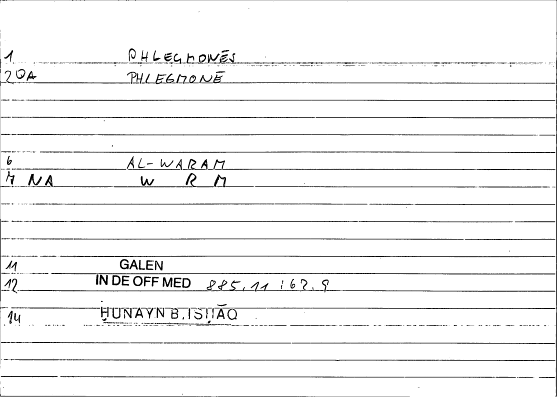 1 PHLEGMONĒS
2 QA PHLEGMONĒ
6 AL-WARAM
7 NA W R M
11 GALEN
12 IN DE OFF MED 885.11 : 62.9
14 ḤUNAYN B. ISḤĀQ